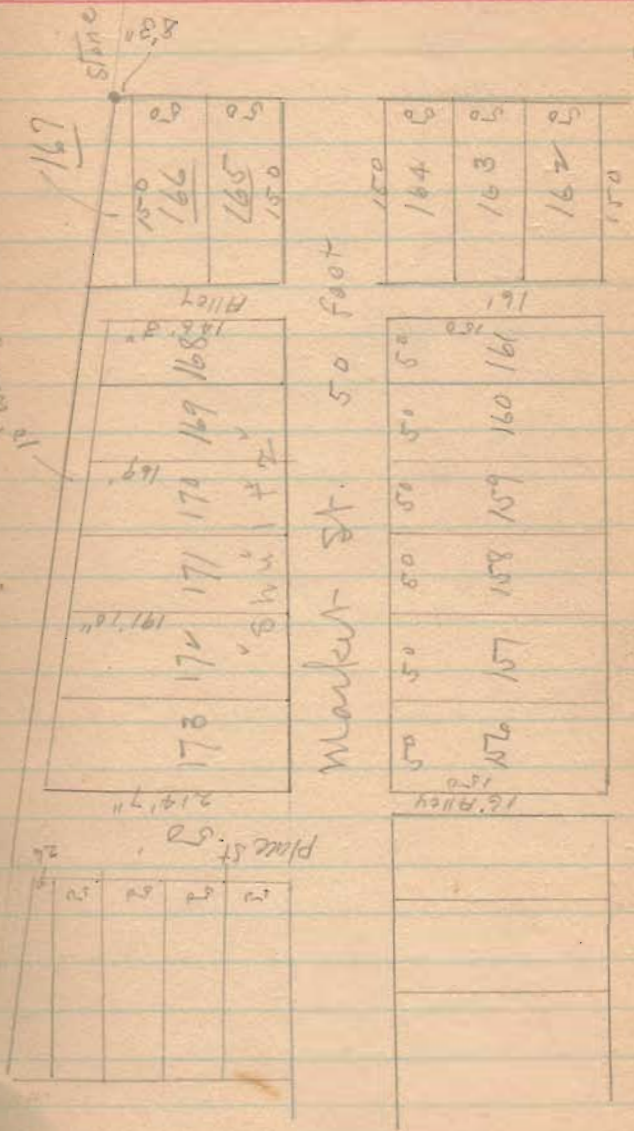 Stone
8'3"
167
50
50
150
166
165
150
150
50
50
50
164
163
162
150
Alley
16'
146' 8"
168
169
169'
170
171
191' 10"
172
173
214' 7"
"Shultz"
Market St. 50 foot
150
50
161
50
160
50
159
50
158
50
157
50
156
150
16' Alley
Place St
50
50
50
50
50